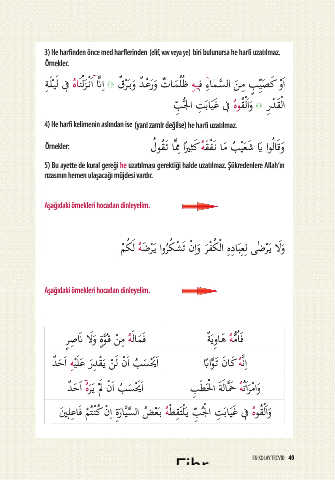 3) He harfinden önce med harflerinden (elif, vav veya ye) biri bulunursa he harfi uzatılmaz.
Örnekler:
اَوْ كَصَيِّبٍ مِنَ السَّمَاءِ فِيهِ ظُلُمَاتٌ وَرَعْدٌ وَبَرْقٌ ﴿﴾ اِنَّٓا اَنْزَلْنَاهُ فِي لَيْلَةِ
الْقَدْرِ ﴿﴾ وَاَلْقُوهُ فِي غَيَابَتِ الْجُبِّ
4) He harfi kelimenin aslından ise (yani zamir değilse) he harfi uzatılmaz.
Örnekler: قَالُوا يَا شُعَيْبُ مَا نَفْقَهُ كَثِيرًا مِمَّا تَقُولُ
5) Bu ayette de kural gereği he uzatılması gerektiği halde uzatılmaz. Şükredenlere Allah'ın
rızasının hemen ulaşacağı müjdesi vardır.
Aşağıdaki örnekleri hocadan dinleyelim.
وَلَا يَرْضٰى لِعِبَادِهِ الْكُفْرَ وَاِنْ تَشْكُرُوا يَرْضَهُ لَكُمْ
Aşağıdaki örnekleri hocadan dinleyelim.
فَاُمُّهُ هَاوِيَةٌ فَمَالَهُ مِنْ قُوَّةٍ وَلَا نَاصِرٍ
اِنَّهُ كَانَ تَوَّابًا اَيَحْسَبُ اَنْ لَنْ يَقْدِرَ عَلَيْهِ اَحَدٌ
وَامْرَاَتُهُ حَمَّالَةَ الْحَطَبِ اَيَحْسَبُ اَنْ لَمْ يَرَهُٓ اَحَدٌ
وَاَلْقُوهُ فِي غَيَابَتِ الْجُبِّ يَلْتَقِطْهُ بَعْضُ السَّيَّارَةِ اِنْ كُنْتُمْ فَاعِلِينَ
49